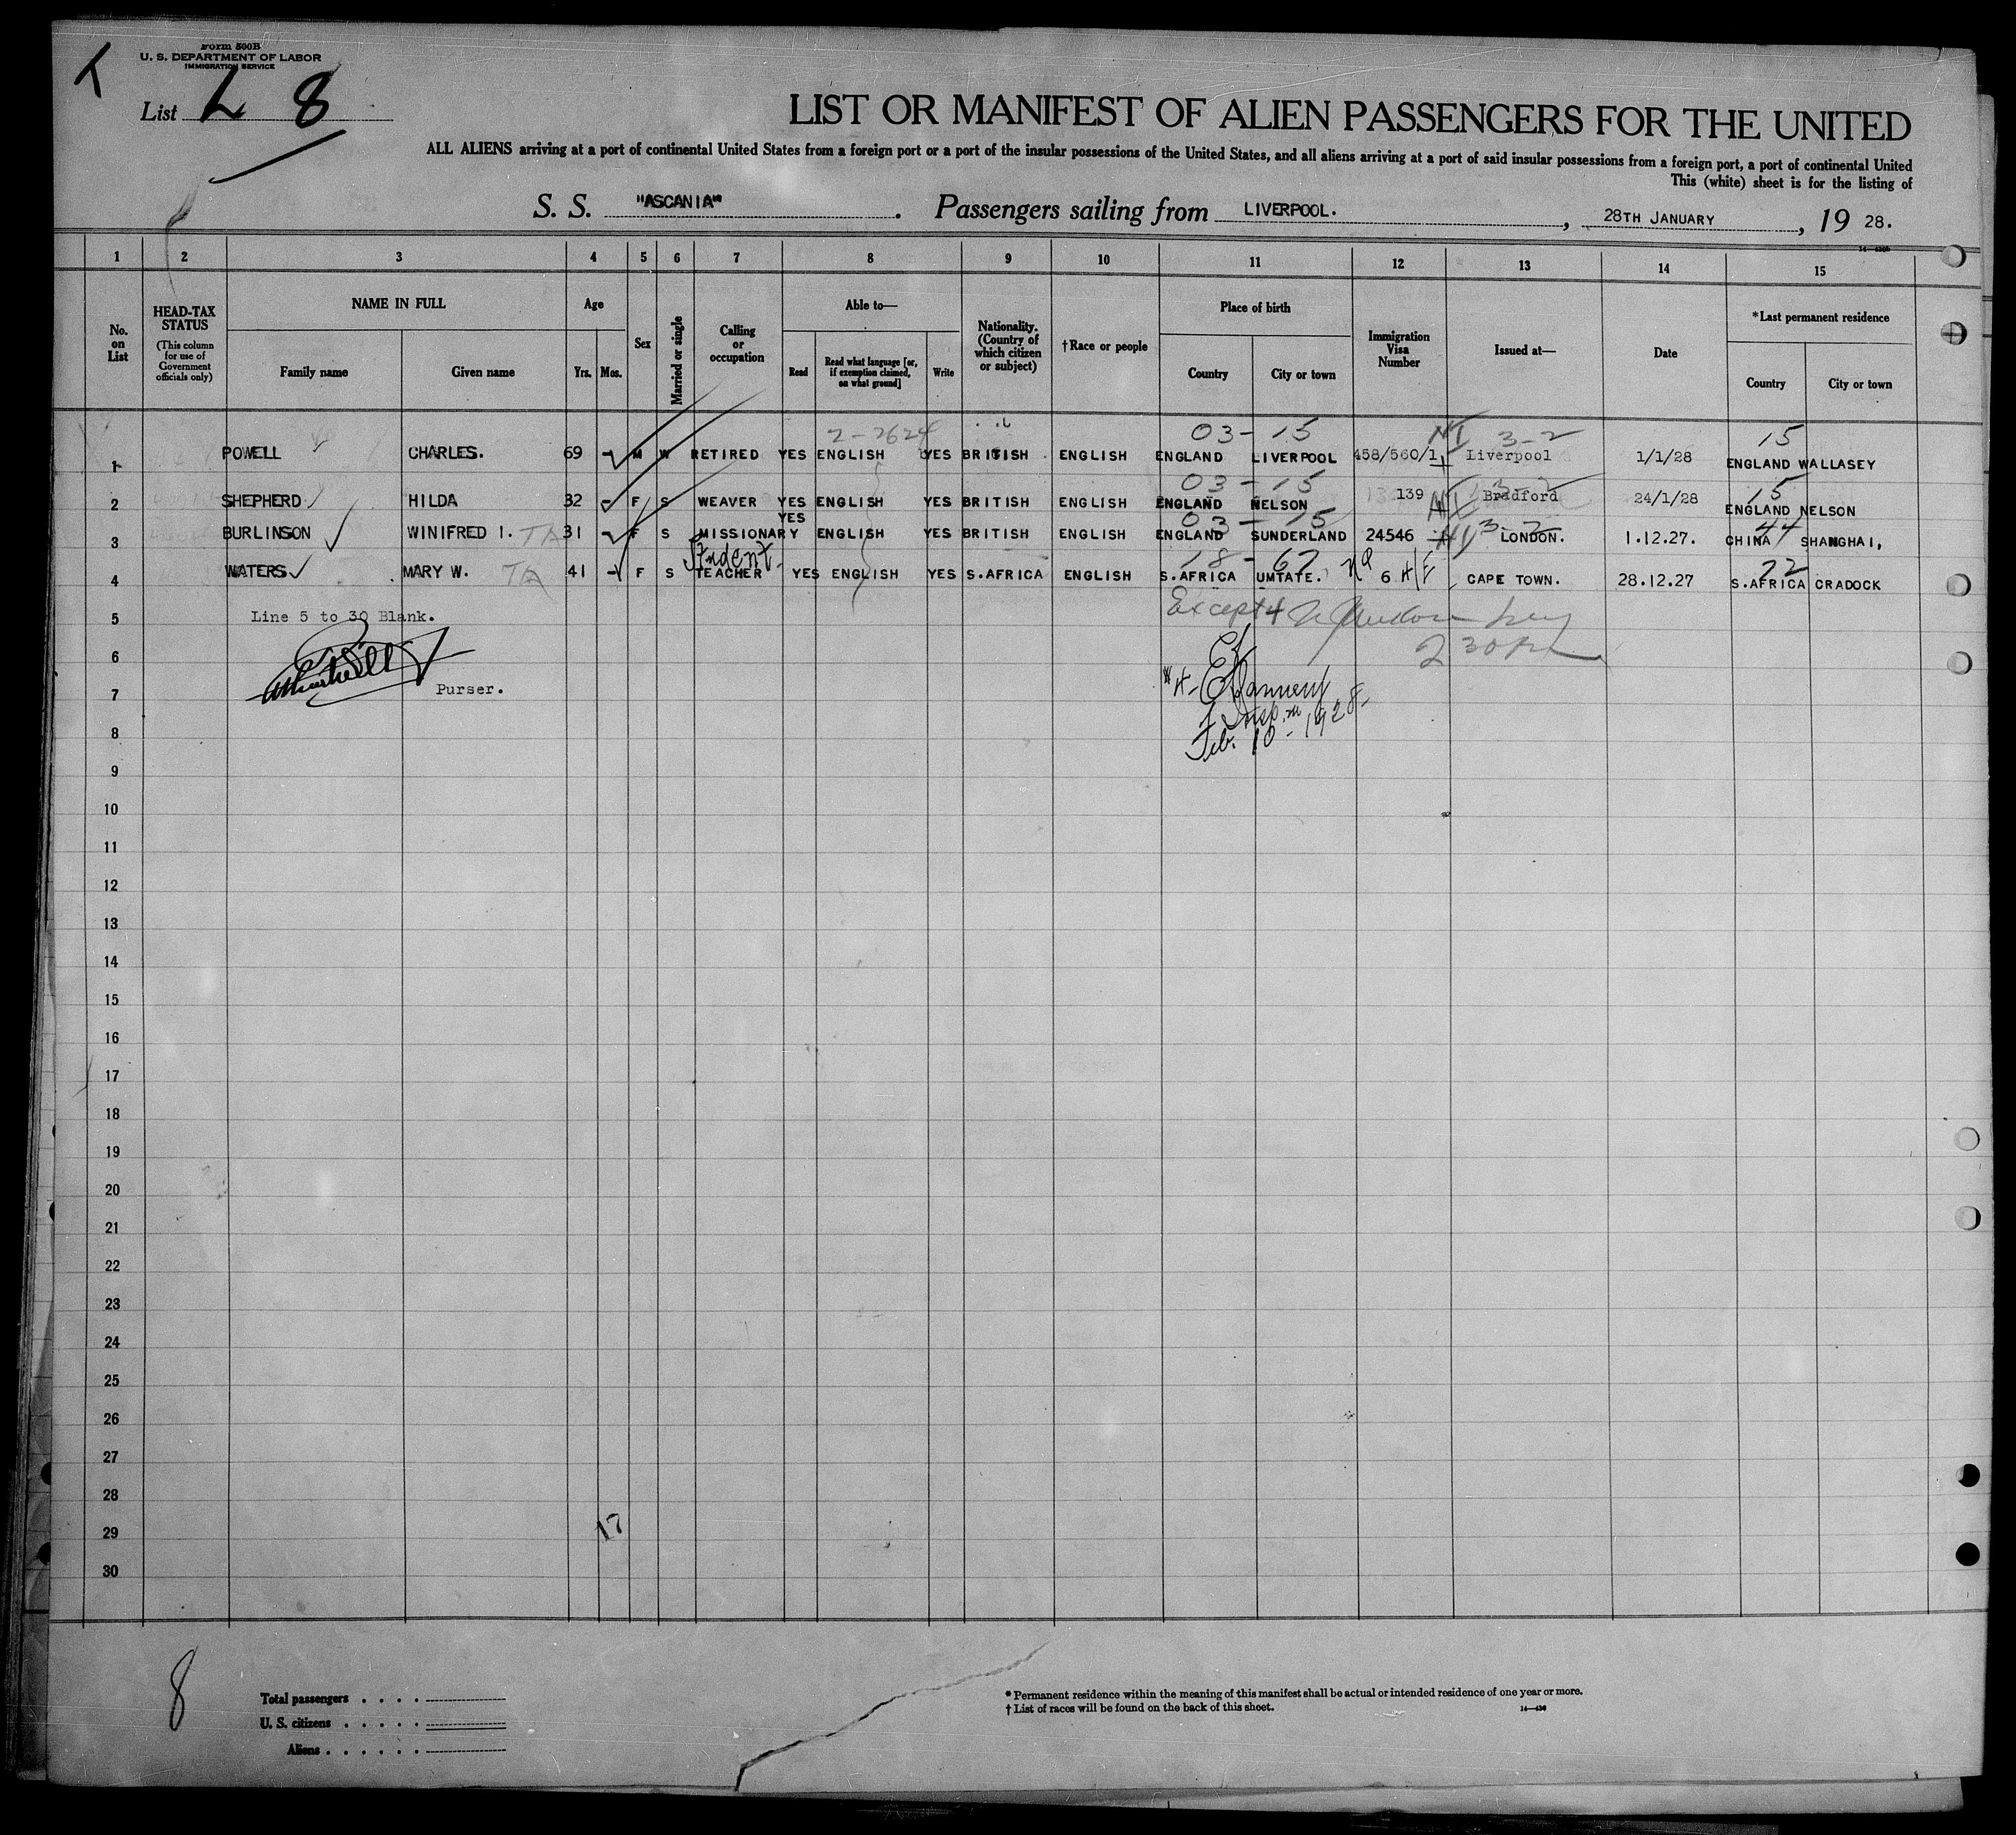 Form 500B
U. S. DEPARTMENT OF LABOR
IMMIGRATION SERVICE
List L 8
LIST OR MANIFEST OF ALIEN PASSENGERS FOR THE UNITED
ALL ALIENS arriving at a port of continental United States from a foreign port or a port of the insular possessions of the United States, and all aliens arriving at a port of said insular possessions from a foreign port, a port of continental United
This (white) sheet is for the listing of
S. S. "ASCANIA". Passengers sailing from LIVERPOOL., 28TH JANUARY, 19 28.
1 2 3 4 5 6 7 8 9 10 11 12 13 14 15
No. on List
HEAD-TAX STATUS
(This column for use of Government officials only)
NAME IN FULL
Family name Given name
Age
Yrs. Mos.
Sex
Married or single
Calling or occupation
Able to—
Read
Read what language [or, if exemption claimed, on what ground]
Write
Nationality. (Country of which citizen or subject)
†Race or people
Place of birth
Country City or town
Immigration Visa Number
Issued at—
Date
*Last permanent residence
Country City or town
2-2624 03-15 3-2 15
1 POWELL CHARLES. 69 - M W RETIRED YES ENGLISH YES BRITISH ENGLISH ENGLAND LIVERPOOL 458/560/1 Liverpool 1/1/28 ENGLAND WALLASEY
03-15 3-2 15
2 SHEPHERD HILDA 32 - F S WEAVER YES ENGLISH YES BRITISH ENGLISH ENGLAND NELSON 139 Bradford 24/1/28 ENGLAND NELSON
03-15 3-2 44
3 BURLINSON WINIFRED I. TA 31 - F S MISSIONARY YES ENGLISH YES BRITISH ENGLISH ENGLAND SUNDERLAND 24546 LONDON. 1.12.27. CHINA SHANGHAI,
Student 18-67 72
4 WATERS MARY W. TA 41 - F S TEACHER YES ENGLISH YES S.AFRICA ENGLISH S.AFRICA UMTATE. 6 CAPE TOWN. 28.12.27 S.AFRICA CRADOCK
5 Line 5 to 30 Blank. Except 4
6
7 Purser.
Feb. 10-1928
8
9
10
11
12
13
14
15
16
17
18
19
20
21
22
23
24
25
26
27
28
29 17
30
8
Total passengers
U. S. citizens
Aliens
* Permanent residence within the meaning of this manifest shall be actual or intended residence of one year or more.
† List of races will be found on the back of this sheet.
14—430